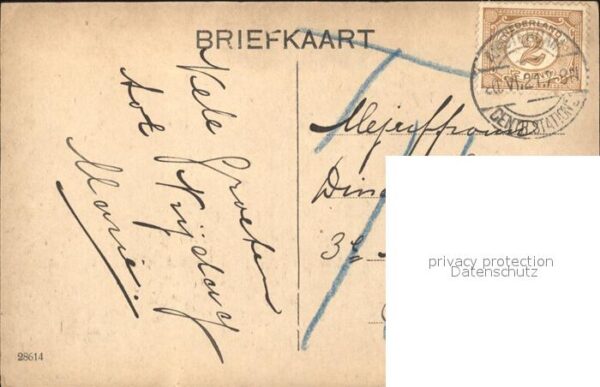 BRIEFKAART
NEDERLAND
2
CENT
VI.21.7-8N
CENTR. STATION
Vele Groeten
tot Vrijdag
Marie.
Mejuffrouw
3e
28614
privacy protection
Datenschutz